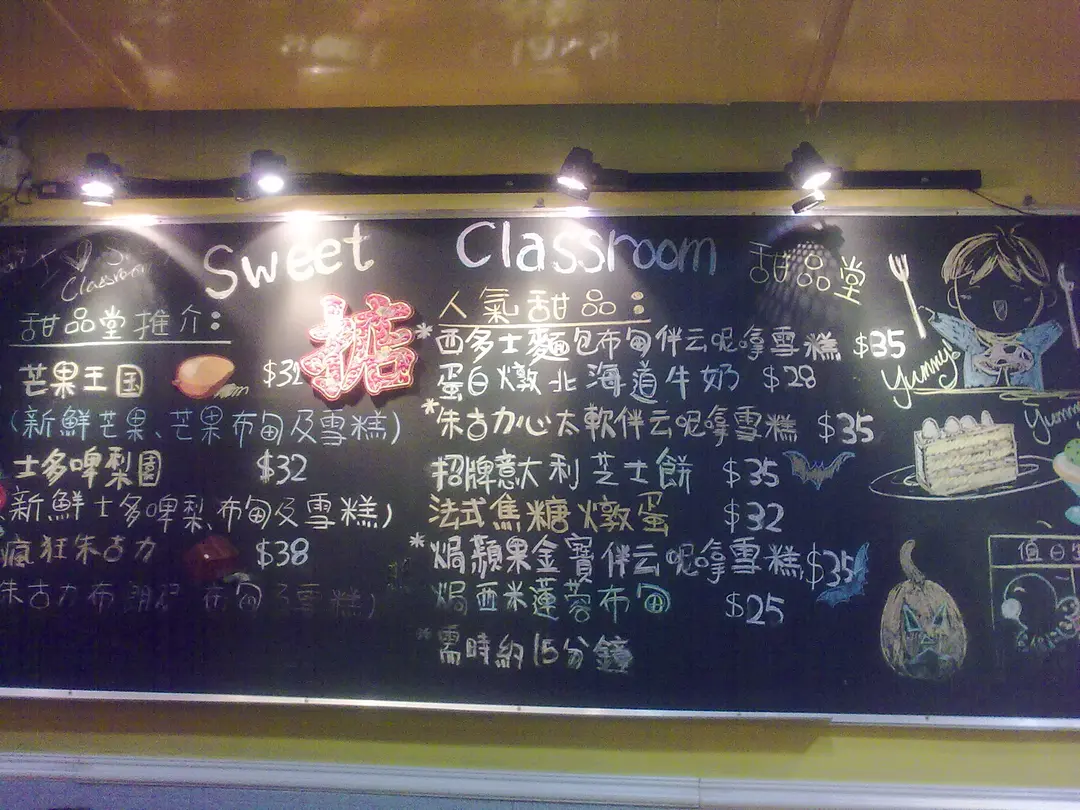 I ♡ S
Classroom
Sweet Classroom 甜品堂
甜品堂推介:
芒果王国 $32
(新鮮芒果、芒果布甸及雪糕)
士多啤梨園 $32
新鮮士多啤梨、布甸及雪糕)
瘋狂朱古力 $38
朱古力布 布甸及雪糕)
糖
人氣甜品:
*西多士麵包布甸伴云呢拿雪糕 $35
蛋白燉北海道牛奶 $28
*朱古力心太軟伴云呢拿雪糕 $35
招牌意大利芝士餅 $35
法式焦糖燉蛋 $32
*焗蘋果金寶伴云呢拿雪糕 $35
焗西米蓮蓉布甸 $25
*需時約15分鐘
Yummy!
Yummy
值日生